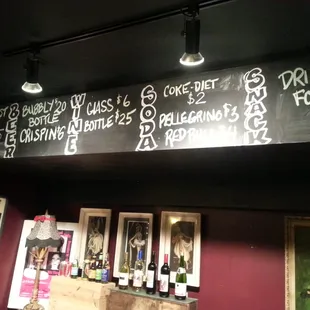 BEER
BUBBLY $20
BOTTLE
CRISPIN $6
WINE
GLASS $6
BOTTLE $25
SODA
COKE-DIET
$2
PELLEGRINO $3
RED BULL $4
SNACK
DRI
FO